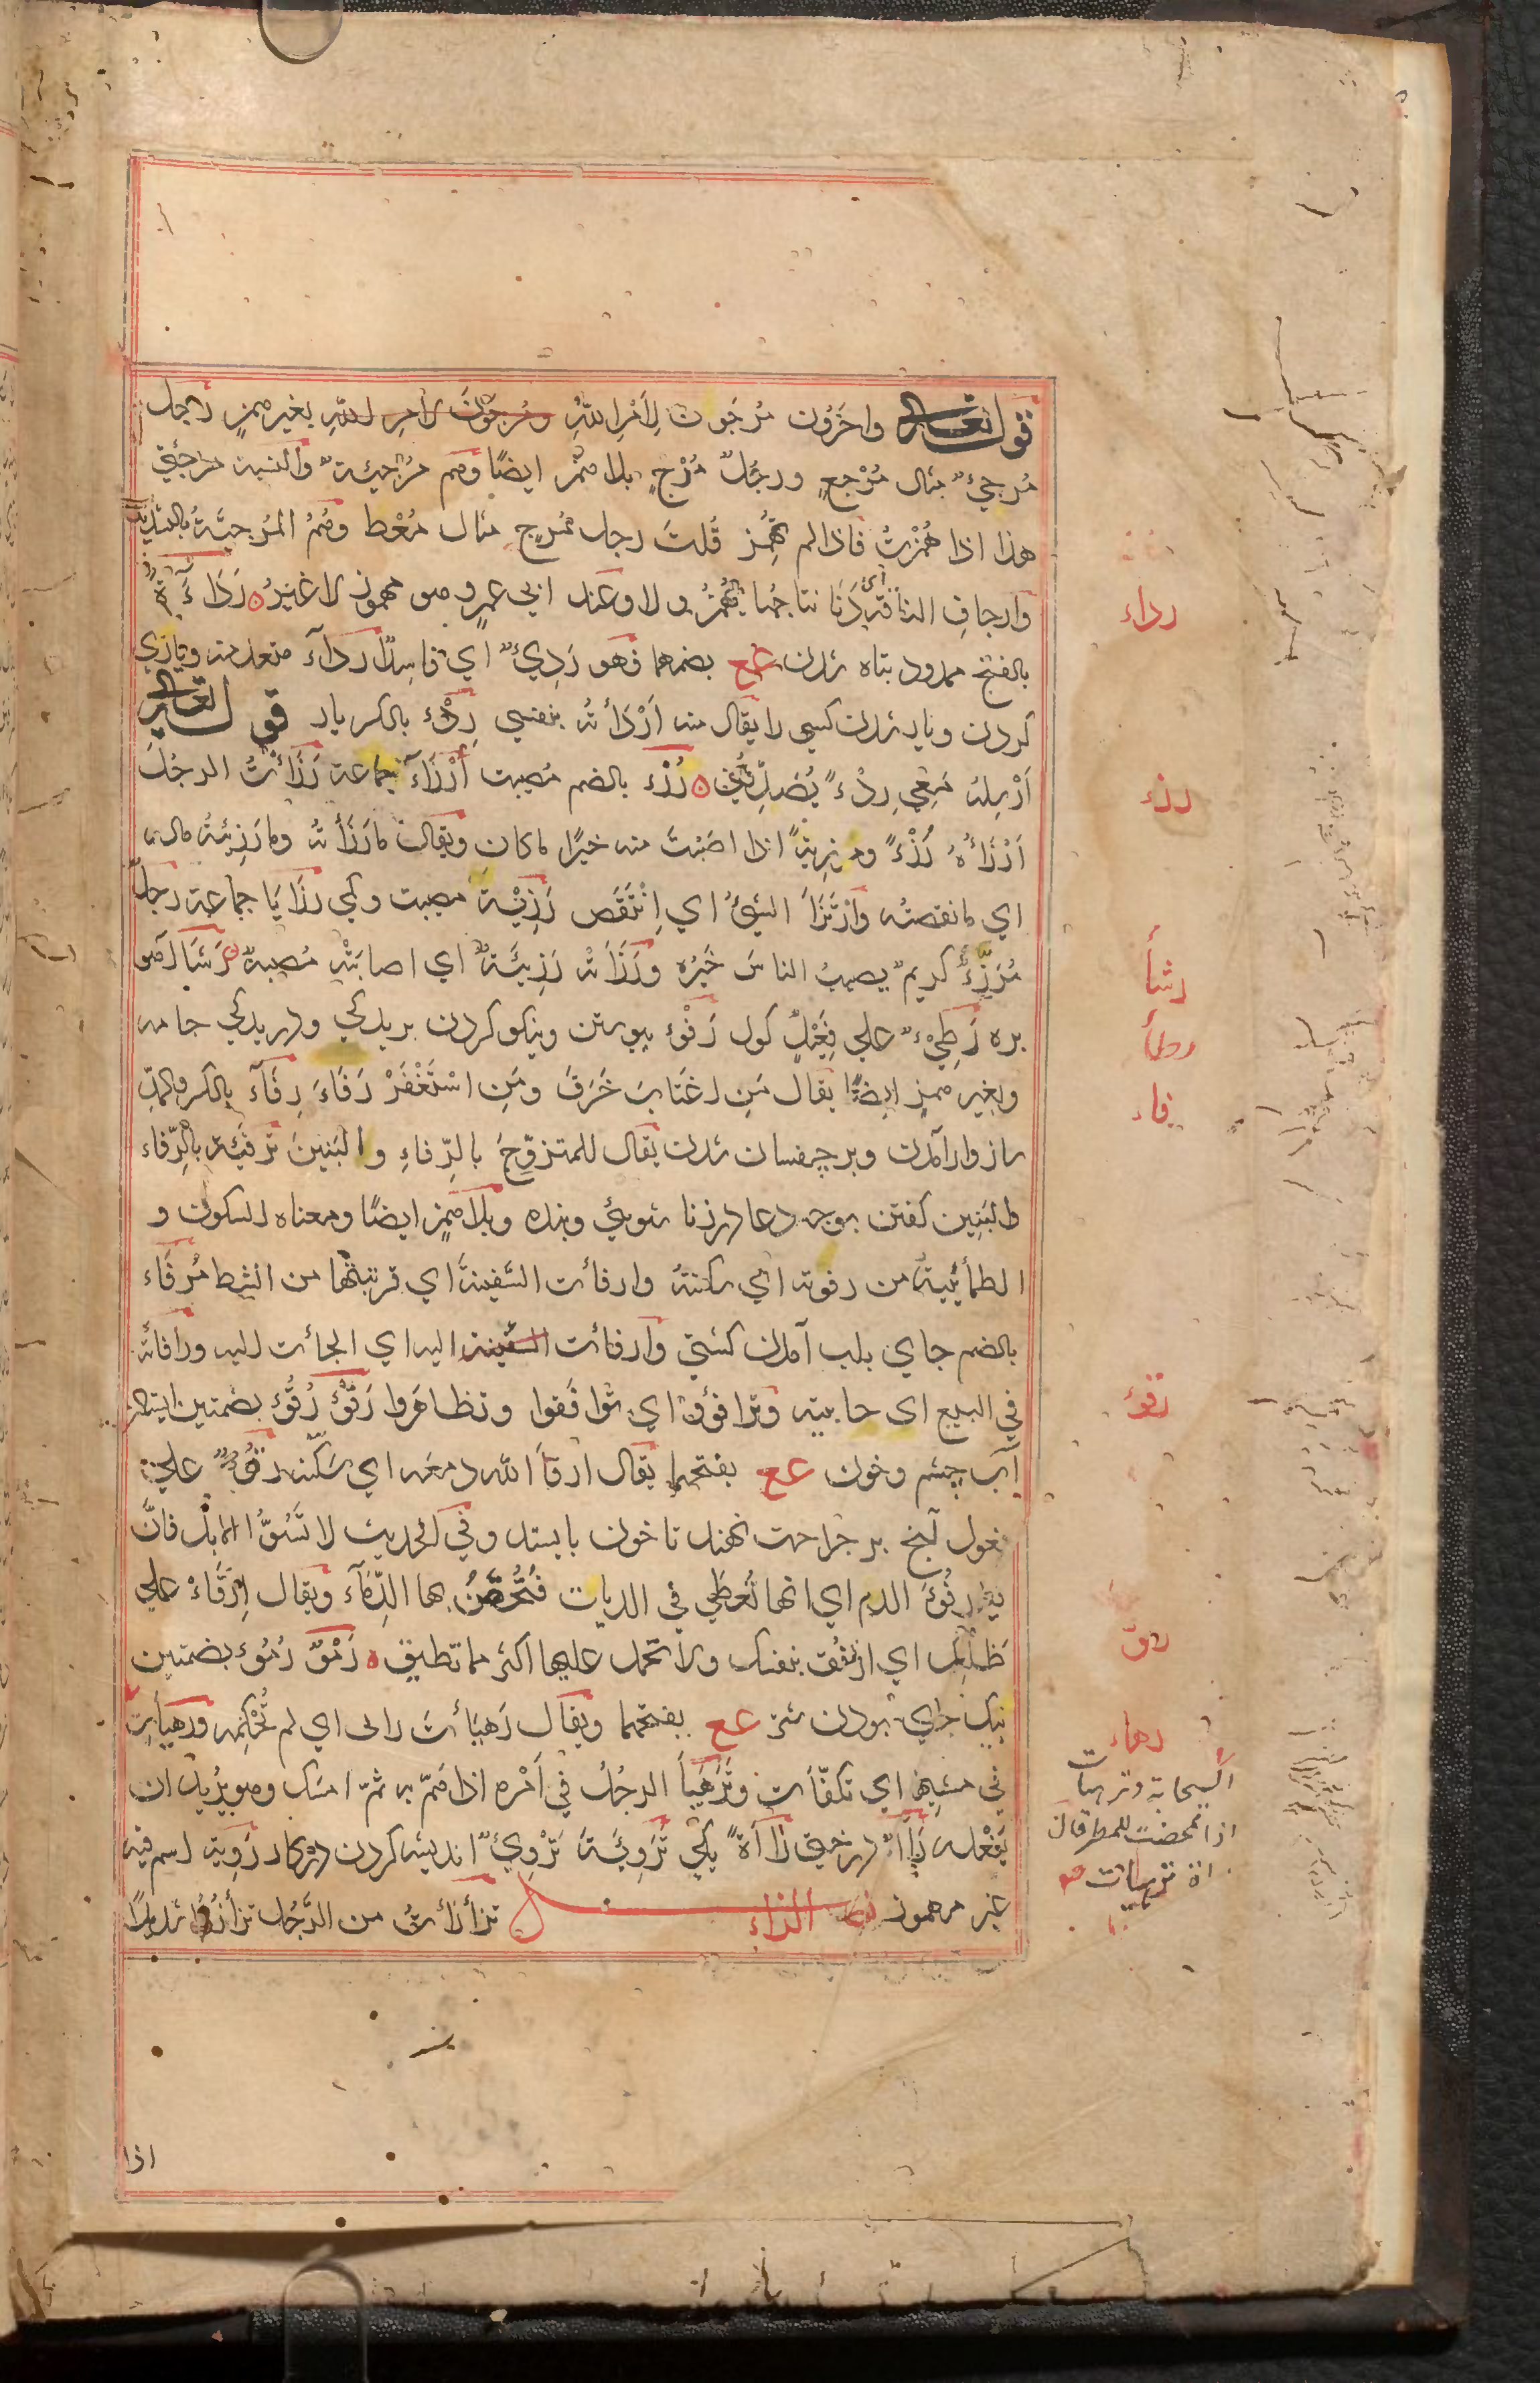 قوله تعالى واخَرُون مُرجَون لِاَمْرِ اللّهِ ومُرجَوْن لامر للّهِ بغير همزٍ رجل
مُرجِئٌ مثال مُرْجعٍ ورجُلٌ مُرْجٍ بلا همْزٍ ايضًا وهم مُرْجِئةٌ والنسبة مرجئيّ
هذا اذا هَمَزتُ فاذا لم تَهمِز قُلتَ رجل مُرجٍ مثال مُعْط وهُمُ المُرجيّةُ بالتشديد
وارجاتِ الناقة اى دَنَا نتاجُها يُهمَزُ ولا وعند ابى عمرٍو هو مهموز لا غيرُ رَدَاءَة
بالفتح ممدود تباه شدن عع بضمهما فهو رَدِيءٌ اي فاسِدٌ ارداَء متعد منه وياري
كردن وتباه شدن كسى را يقال منه اَرْدَأتُه بنفسي رِدْء بالكسر يار قوله تعالى
اَرْسِلهُ مَعِي رِدْءً يُصَدِّقُنِي رُزْء بالضم مُصيبت اَرْزَاءَ جماعة رَزَأتُ الرجُلَ
اَرْزَأهُ رُزْءً ومرزِئةً اذا اصَبْتَ منه خيرًا ما كان ويقال ما رَزَأتُه وما رَزِئتُه ماله
اي ما نقصتُه وارْتَزَأ الشيُ اي اِنْتَقَص رَزِيْئة مصيبت وكى رزايَا جماعة رجلٌ
مُرَزَّءٌ كريمٌ يصيبُ الناسَ خَيْرُه ورَزَأتْه رَزِيئَةٌ اى اصابَتْه مُصيبةٌ رَشَأ آهو
بره رَطِيْءٌ على فَعِيْلٍ كول رَفْوء پيوستن ونيكو كردن بريدكى ودريدكى جامه
وبغير همز ايضًا يقال مَنِ اغتابَ خَرَقَ ومَنِ اسْتَغْفَرْ رَفَاءَ رِفَآَء بالكسر والمدّ
سازوار آمدن وبر چفسان شدن يقال للمتزوِّجَ بالرِّفاءِ والبَنينَ تَرفئة بالرِّفاء
والبَنِين كفتن بوجه دعا در زنا شوئى وبنده وبلا همزٍ ايضًا ومعناه السكون و
الطمأنينةُ من رفوته اي سكنتهُ وارفأت السَّفينةَ اي قربتها من الشط مُرفَاء
بالضم جاي بلب آمدن كشتى وارفأت السفينة اليه اي الجأت اليه ورافأته
في البيع اى حابيته وترافؤا اي توَافَقوا وتظاهَروا رَقْؤ رُقُؤ بضمتين ايستادن
آب چشم وخون عع بفتحهما يقال ارقأ الله دمعَه اي سكّنه رقُوءٌ على
فعول آنچ بر جراحت نهند تا خون بايستد وفي الحديث لا تَسُبُّوا الابل فانَّ
فيها رقُوءَ الدم اي انها تُعطَي في الديات فَتُحقَنُ بها الدِّمَاء ويقال اِرْقَاْ على
ظَلْعِك اي ارفُق بنفسك ولا تحمل عليها اكثر مما تطيق رَمْؤ رُمُوْء بضمتين
بيك جاي بودن شتر عع بفتحهما ويقال رَهيَأتَ رائى اي لم تُحْكِمه ورهيأت
فى مشيها اي تكفّأت وتَرَهيَأ الرجُلُ في اَمْره اذا هَمّ به ثمّ امسَك وهو يُريد ان
يَفْعله رَاء درختى رَاءَة يكى تَرْوِئَة تَرْوِيءٌ انديشه كردن در كار رَوِيّة اسم فيه
غير مهموز فصل الزاء تزأزأتُ من الرَّجُل تزأزُؤًا
رداء
رزء
رشأ
رطأ
رفاء
رقؤ
رهاء
السحابة وترهيات
اذا تمخضت للمطر قال
ترهيات صح
اذا